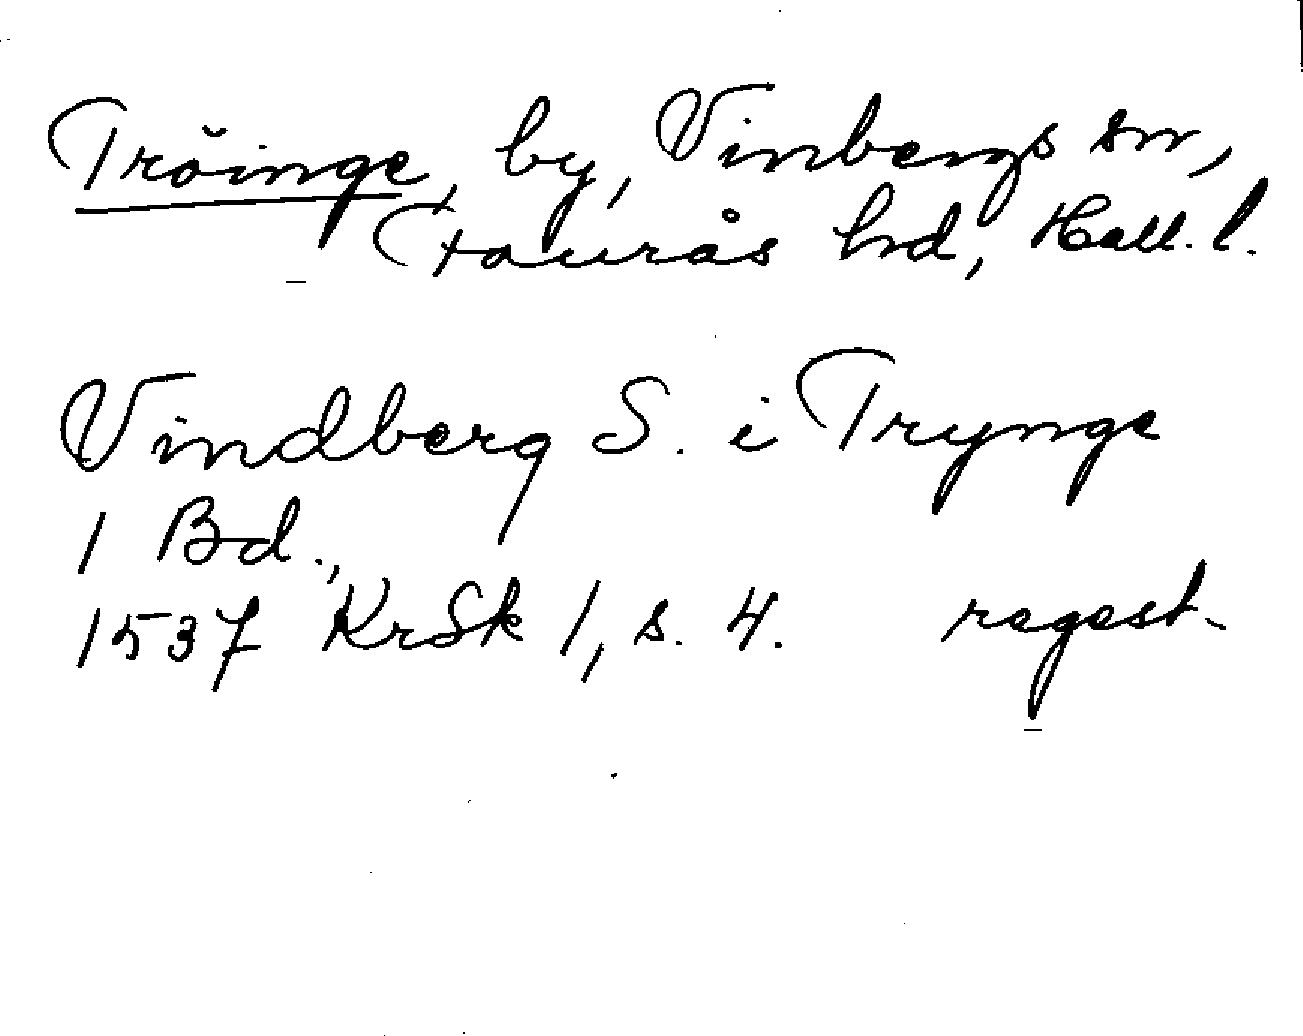 Tröinge, by, Vinbergs sn,
Faurås hd, Hall. l.
Vindberg S. i Trynge
1 Bd.,
1537 KrSk 1, s. 4. regest.